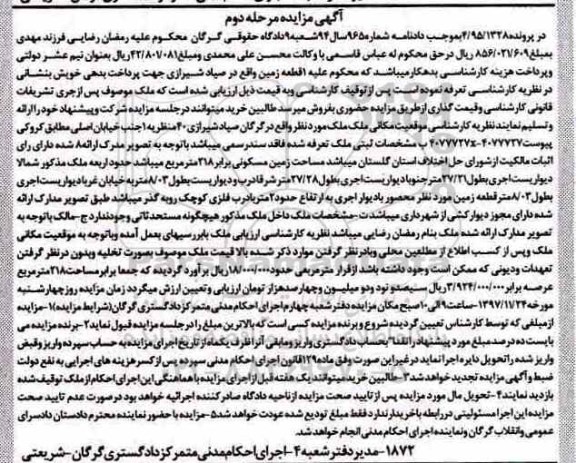 آگهی مزایده مرحله دوم
در پرونده ۴/۹۵/۱۳۲۸بموجب دادنامه شماره۹۶۵سال۹۴شعبه۹دادگاه حقوقی گرگان محکوم علیه رمضان رضایی فرزند مهدی
بمبلغ۸۵۶/۰۲۱/۶۰۹ ریال در حق محکوم له عباس قاسمی با وکالت محسن علی محمدی ومبلغ۴۲/۸۰۱/۰۸۱ریال بعنوان نیم عشر دولتی
وپرداخت هزینه کارشناسی بدهکارمیباشدکه محکوم علیه۱قطعه زمین واقع در صیاد شیرازی جهت پرداخت بدهی خویش بنشانی
در نظریه کارشناسی تعرفه نموده است پس ازتوقیف کارشناسی وبه قیمت ذیل ارزیابی شده است که ملک موصوف پس ازجری تشریفات
قانونی کارشناسی وقیمت گذاری ازطریق مزایده حضوری بفروش میرسدطالبین خریدمیتواننددرجلسه مزایده شرکت وپیشنهادخودراارائه
وتسلیم نمایندنظریه کارشناسی موقعیت مکانی ملک ملک موردنظرواقع درگرگان صیادشیرازی۴۰متنظریه۱جنب خیابان اصلی مطابق کروکی
پیوست۴۰۷۷۷۲۷-۴۰۷۷۷۲۷x ب مشخصات ثبتی ملک تعرفه شده فاقد سندرسمی میباشدباتوجه به تصویر مدرک ارائه۸ شده دارای رای
اثبات مالکیت ازشورای حل اختلاف استان گلستان میباشد مساحت زمین مسکونی برابر۲۱۸مترمربع میباشدحدوداربعه ملک مذکورشمالا
دیواریست اجری بطول۲۷/۲۱مترجنوبادیواریست اجری بطول۲۷/۲۸مترشرقادرب ودیواریست بطول۸/۰۳متربه خیابان غربادیواریست اجری
بطول۸/۰۳مترقطعه زمین مورد نظر محصور بادیوار اجری به ارتفاع حدود۲متربادرب فلزی کوچک روبه گذر میباشد طبق تصویر مدارک ارائه
شده دارای مجوز دیوارکشی از شهرداری میباشدت-مشخصات ملک داخل ملک مذکور هیچگونه مستحدثاتی وجودنداردج-مالک باتوجه به
تصویر مدارک ارائه شده ملک بنام رمضان رضایی میباشد نظریه کارشناسی ارزیابی ملک بابررسیهای بعمل آمده وباتوجه به موقعیت مکانی
ملک وپس از کسب اطلاع از مطلعین محلی وبادرنظر گرفتن موارد ذکر شده بالا قیمت ملک موصوف بصورت تخلیه وبدون درنظر گرفتن
تعهدات ودیونی که ممکن است وجود داشته باشد ازقرار مترمربعی حدود۱۸/۰۰۰/۰۰۰ریال برآورد گردیده که جمعا برابر مساحت۲۱۸مترمربع
عرصه برابر۳/۹۲۴/۰۰۰/۰۰۰ریال سیصدو نود ودو میلیون وچهارصدهزار تومان ارزیابی وتعیین ارزش میگردد زمان مزایده روزچهارشنبه
مورخه۱۳۹۷/۱۱/۲۴-ساعت۹الی۱۰صبح مکان مزایده دفترشعبه چهارم اجرای احکام مدنی متمرکزدادگستری گرگان(شرایط مزایده)۱-مزایده
ازمبلغی که توسط کارشناس تعیین گردیده شروع وبرنده مزایده کسی است که بالاترین مبلغ رادرجلسه مزایده قبول نماید۲-برنده مزایده می
بایست ده درصدمبلغ مورد پیشنهادرانقدا"بحساب دادگستری واریزومابقی آنراظرف یکماه ازتاریخ اجرای مزایده به حساب سپرده واریز وقبض
واریز شده راتحویل دایره اجرا نماید در غیراین صورت وفق ماده۱۲۹قانون اجرای احکام مدنی سپرده پس ازکسرهزینه های اجرایی به نفع دولت
ضبط وآگهی مزایده تجدید خواهدشد۳-طالبین خریدمیتوانندیک هفته قبل ازاجرای مزایده باهماهنگی این اجرای احکام ازملک توقیف شده
بازدید نمایند۴-تحویل مال مورد مزایده پس از تایید صحت مزایده ازناحیه دادگاه صادرکننده اجرائیه خواهد بود درصورت عدم تایید صحت
مزایده این اجرا مسئولیتی دررابطه باخریدارنداردفقط مبلغ تودیع شده عودت خواهدشد۵-مزایده باحضور نماینده محترم دادستان دادسرای
عمومی وانقلاب گرگان ونماینده اجرای احکام مدنی انجام خواهدشد.
۱۸۷۲-مدیر دفتر شعبه۴-اجرای احکام مدنی متمرکز دادگستری گرگان-شریعتی